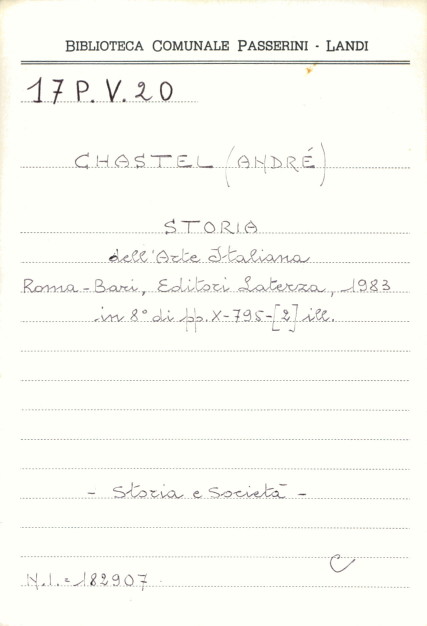 BIBLIOTECA COMUNALE PASSERINI - LANDI
17 P. V. 20
CHASTEL (ANDRÉ)
STORIA
dell'Arte Italiana
Roma - Bari, Editori Laterza, 1983
in 8° di pp. X-795-[2] ill.
- Storia e Società -
C
N.I. = 182907